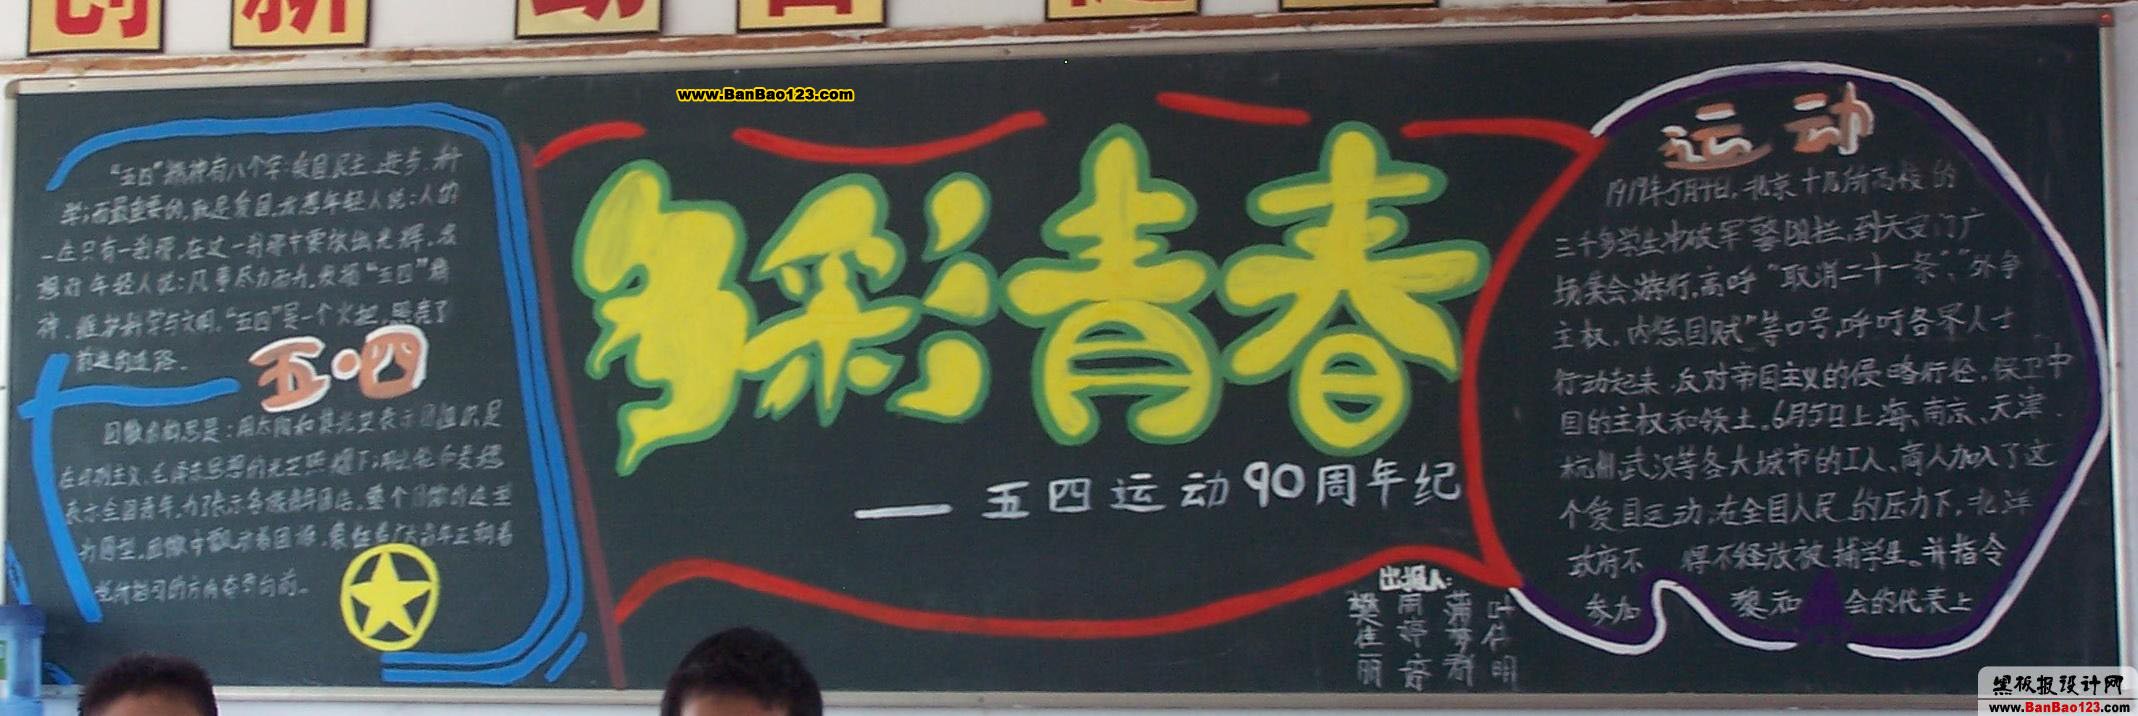 创 新
www.BanBao123.com
"五四"精神有八个字：爱国民主，进步，科
学；而最重要的，就是爱国。 想年轻人说：人的
一生只有一 ，在这一 中要放出光辉。
想对年轻人说：凡事尽力而为，发扬"五四"精
神，维护科学与文明。"五四"是一个火把，照亮了
前进的道路。
五·四
团徽 构思是：用太阳和其光芒表示团组织是
在 主义、毛泽东思想的光芒照耀下；用 和麦穗
表示全国青年，为了表示各族青年团结，整个团徽的造型
为圆型。团徽中飘动着团旗，象征着广大青年正朝着
党所指引的方向奋勇向前。
多彩青春
—五四运动90周年纪
出报人：
樊佳丽
周婷婷
蒲梦
叶仕明
运动
1919年5月4日，北京十几所高校的
三千多学生冲破军警阻拦，到天安门广
场集会游行，高呼"取消二十一条"、"外争
主权，内惩国贼"等口号，呼吁各界人士
行动起来，反对帝国主义的侵略行径，保卫中
国的主权和领土。6月5日上海、南京、天津、
杭州、武汉等各大城市的工人、商人加入了这
个爱国运动，在全国人民的压力下，北洋
政府不 得不释放被捕学生。并指令
参加 黎和 会的代表上
黑板报设计网
www.BanBao123.com